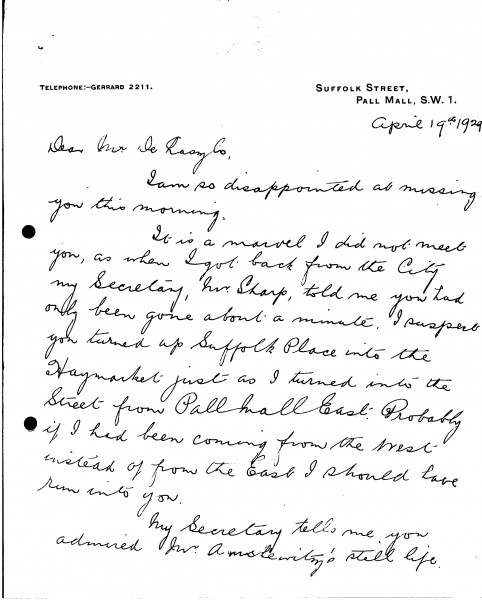 TELEPHONE:-GERRARD 2211.
SUFFOLK STREET,
PALL MALL, S.W. 1.
April 19th 1929
Dear Mr De Laszlo,
I am so disappointed at missing
you this morning.
It is a marvel I did not meet
you, as when I got back from the City
my Secretary, Mr Sharp, told me you had
only been gone about a minute. I suspect
you turned up Suffolk Place into the
Haymarket just as I turned into the
Street from Pall Mall East. Probably
if I had been coming from the West
instead of from the East I should have
run into you.
My Secretary tells me you
admired Mr still life.